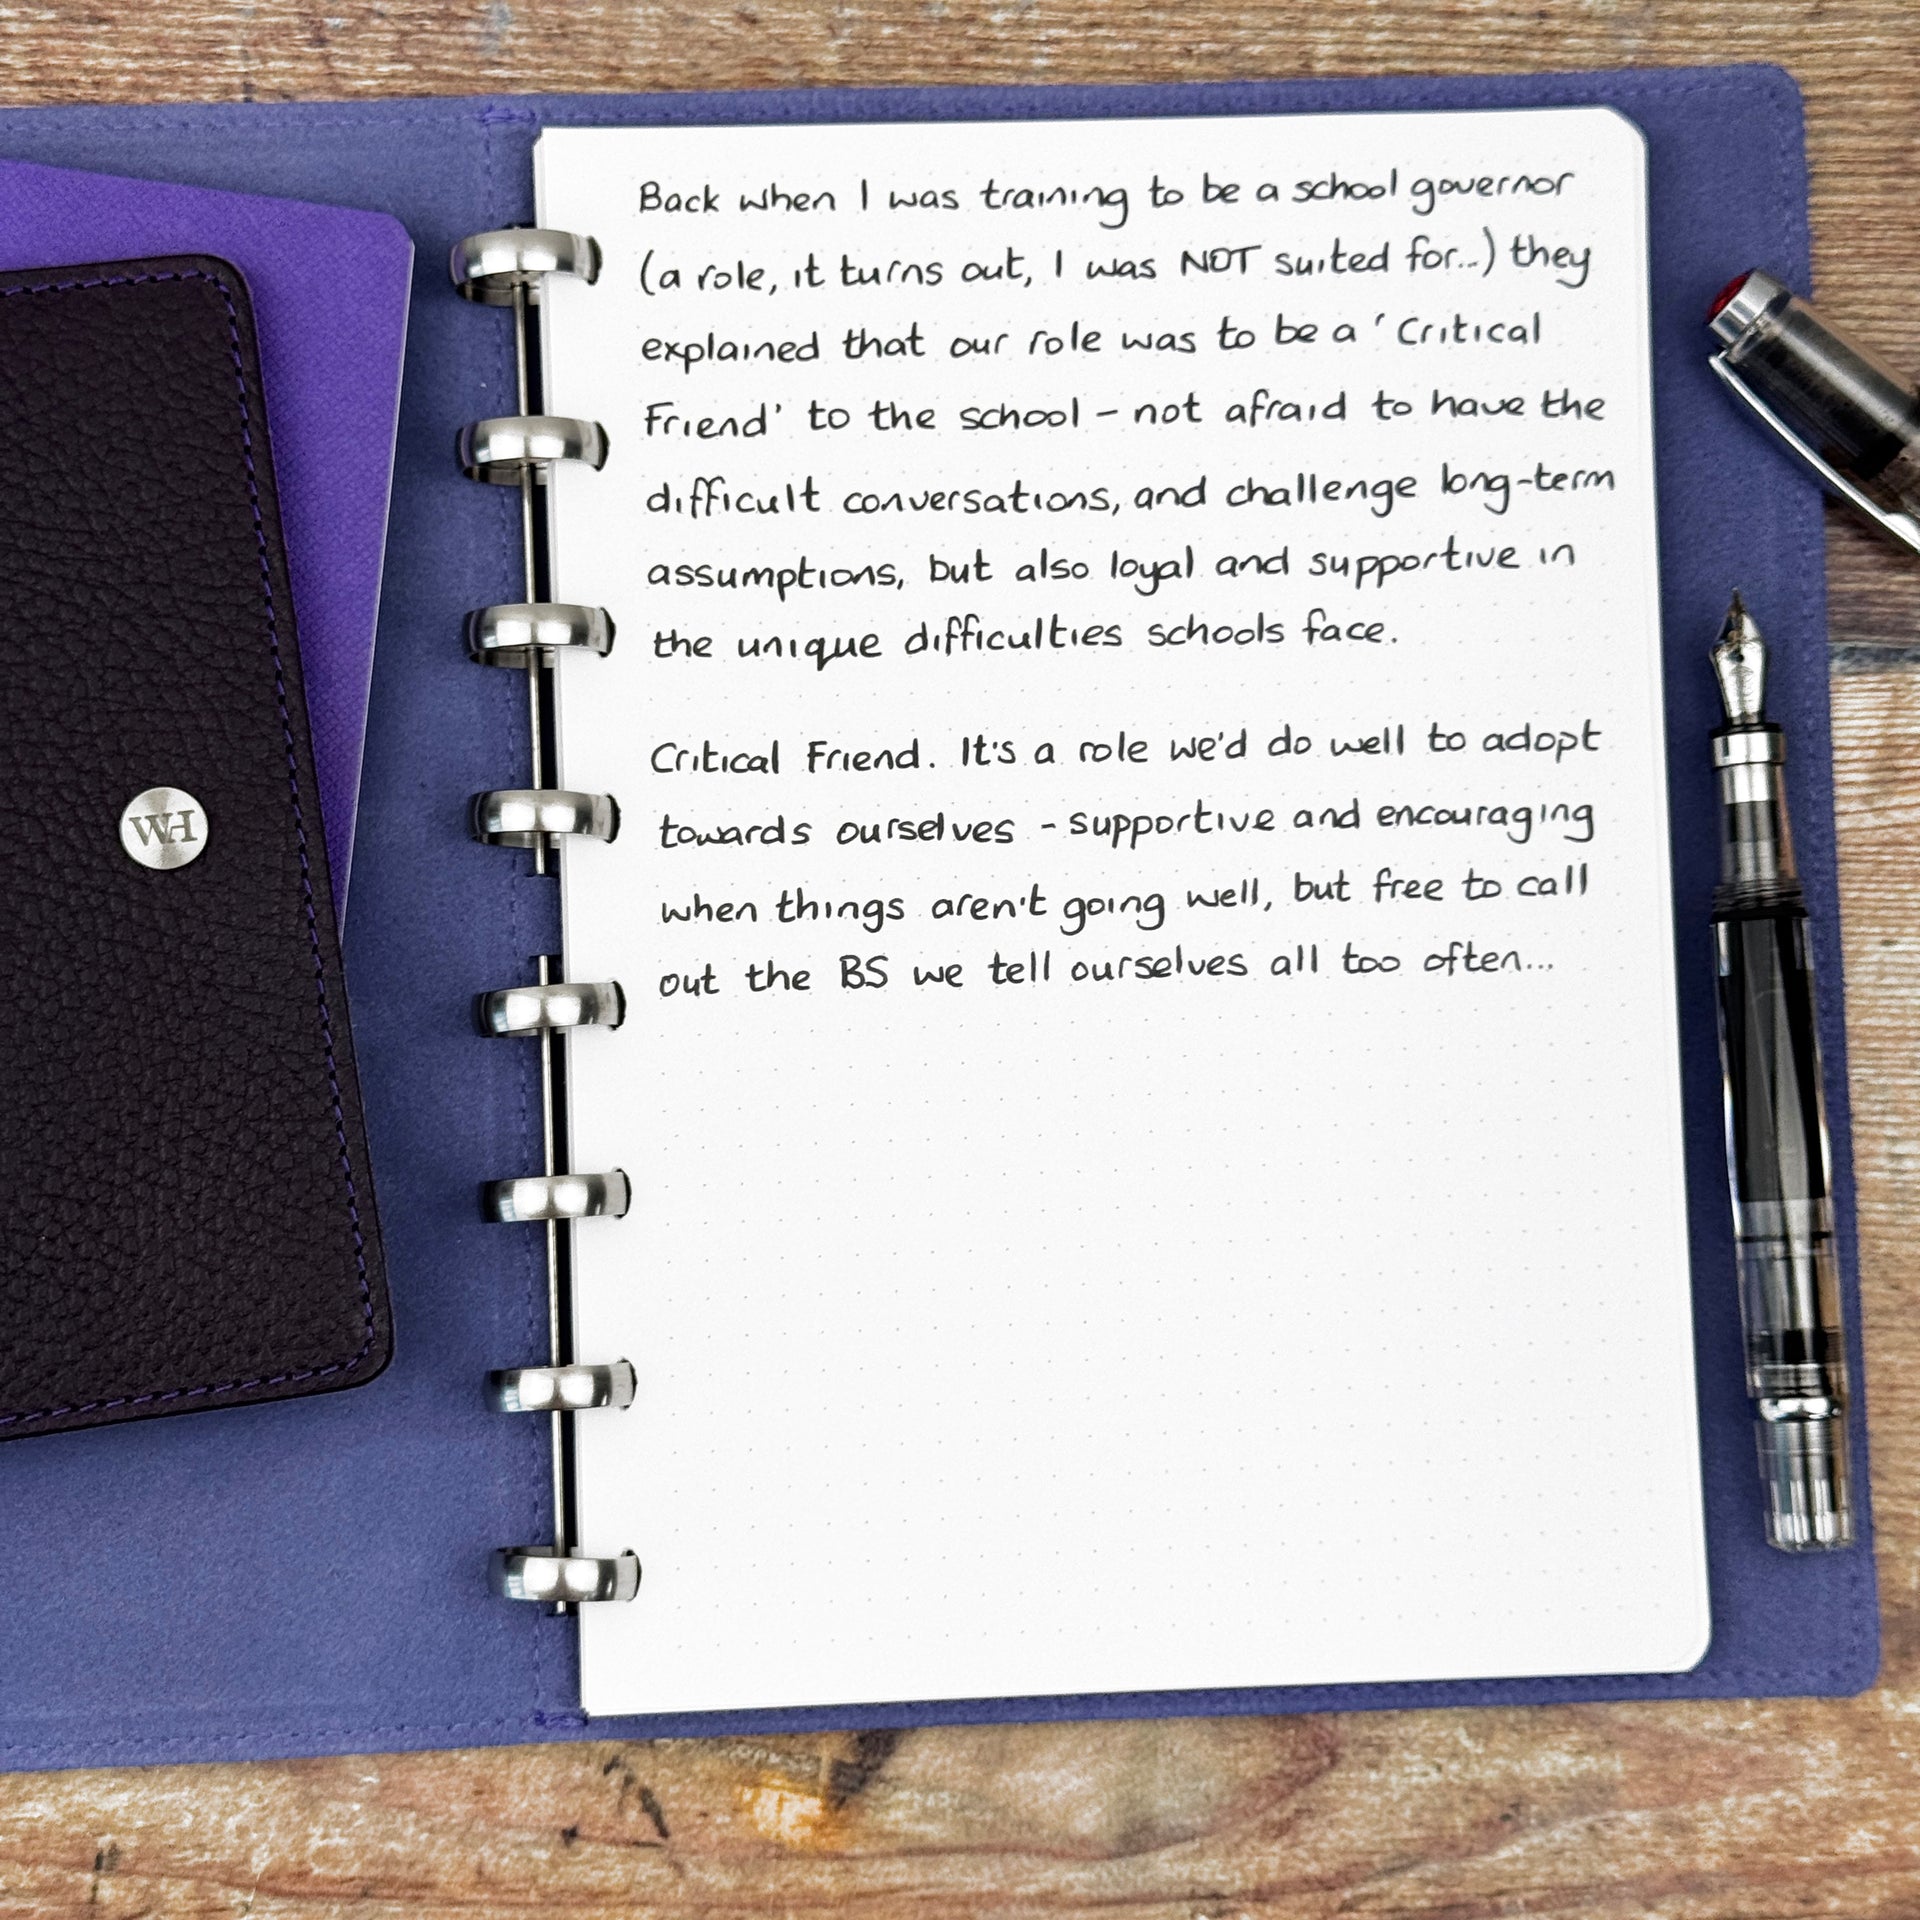 Back when I was training to be a school governor
(a role, it turns out, I was NOT suited for...) they
explained that our role was to be a 'Critical
Friend' to the school – not afraid to have the
difficult conversations, and challenge long-term
assumptions, but also loyal and supportive in
the unique difficulties schools face.
Critical Friend. It's a role we'd do well to adopt
towards ourselves - supportive and encouraging
when things aren't going well, but free to call
out the BS we tell ourselves all too often...
WH